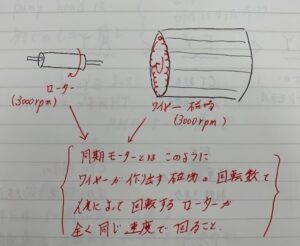 ローター
(3000rpm)
ワイヤー 磁場
(3000rpm)
同期モーターとは このように
ワイヤーが作り出す磁場の回転数と
によって回転するローターが
全く同じ速度で回ること。